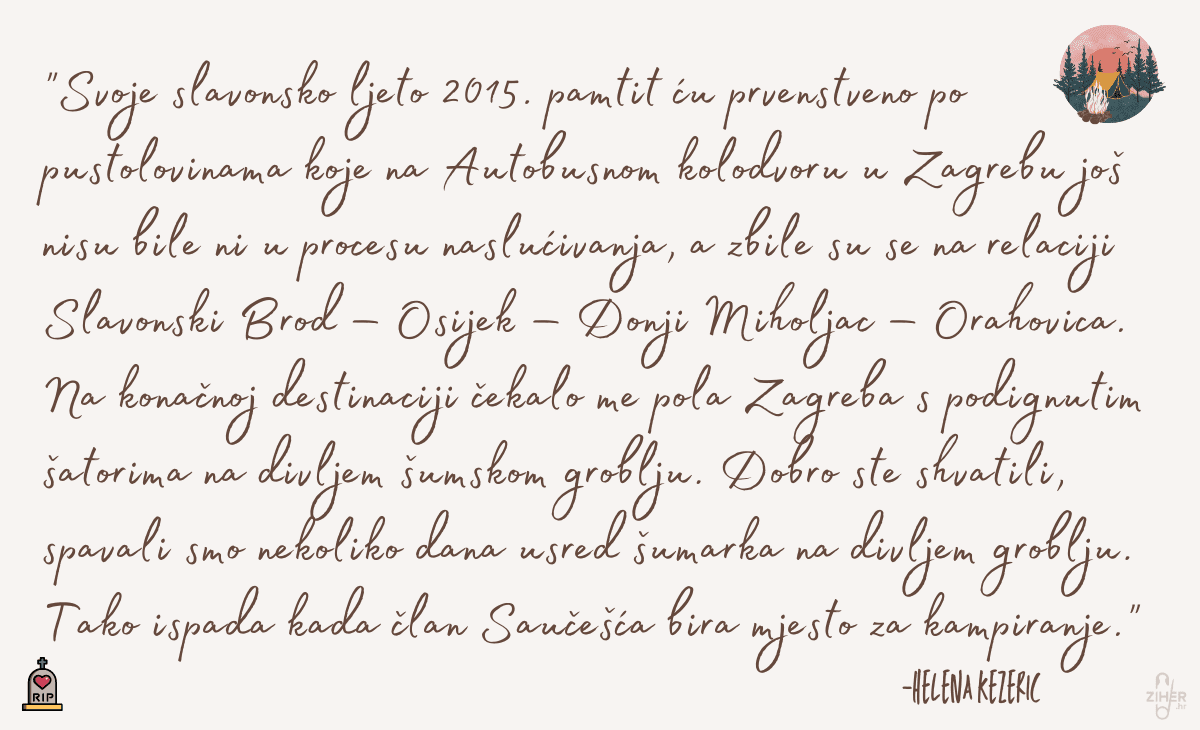 "Svoje slavonsko ljeto 2015. pamtit ću prvenstveno po
pustolovinama koje na Autobusnom kolodvoru u Zagrebu još
nisu bile ni u procesu naslućivanja, a zbile su se na relaciji
Slavonski Brod – Osijek – Donji Miholjac – Orahovica.
Na konačnoj destinaciji čekalo me pola Zagreba s podignutim
šatorima na divljem šumskom groblju. Dobro ste shvatili,
spavali smo nekoliko dana usred šumarka na divljem groblju.
Tako ispada kada član Saučešća bira mjesto za kampiranje."
-HELENA KEZERIC
RIP
ZIHER.hr